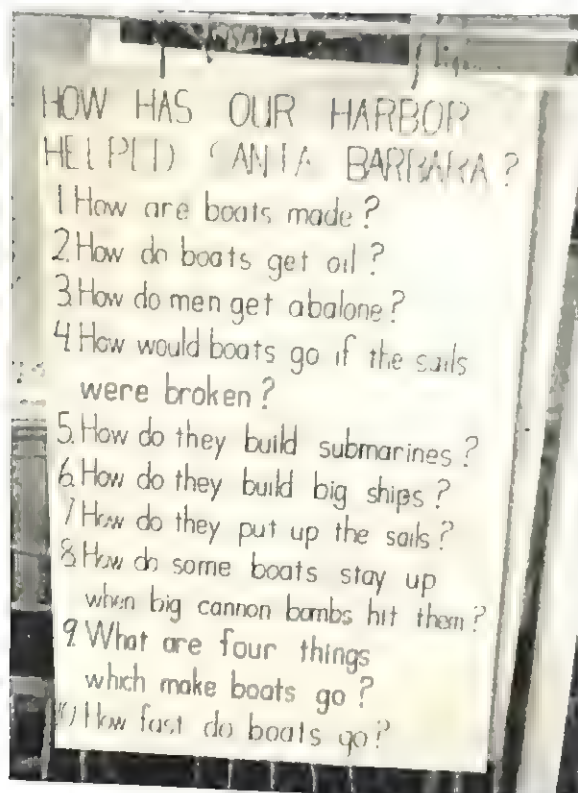 HOW HAS OUR HARBOR
HELPED SANTA BARBARA?
1 How are boats made?
2. How do boats get oil?
3. How do men get abalone?
4. How would boats go if the sails
were broken?
5. How do they build submarines?
6. How do they build big ships?
7 How do they put up the sails?
8. How do some boats stay up
when big cannon bombs hit them?
9. What are four things
which make boats go?
10) How fast do boats go?